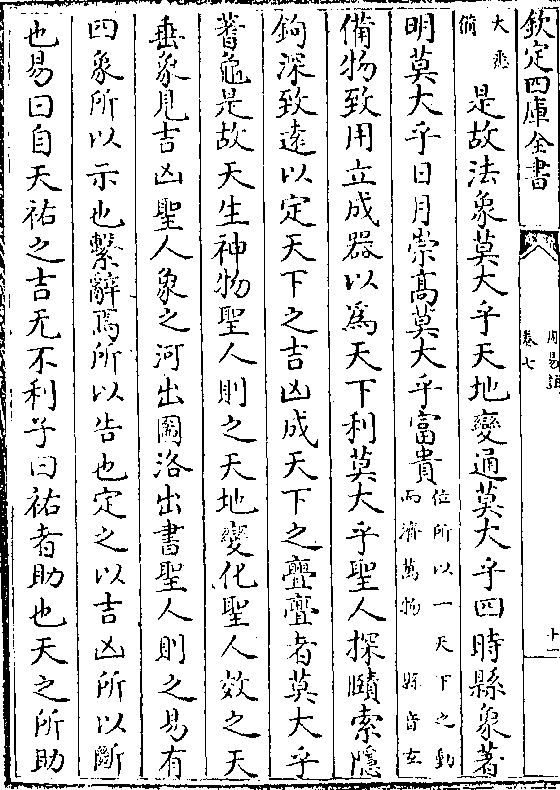 欽定四庫全書
卷七
大乖
備
是故法象莫大乎天地變通莫大乎四時縣象著
明莫大乎日月崇高莫大乎富貴
位所以一天下之動
而濟萬物
縣音玄
備物致用立成器以爲天下利莫大乎聖人探賾索隱
鉤深致遠以定天下之吉凶成天下之亹亹者莫大乎
蓍龜是故天生神物聖人則之天地變化聖人效之天
垂象見吉凶聖人象之河出圖洛出書聖人則之易有
四象所以示也繫辭焉所以告也定之以吉凶所以斷
也易曰自天祐之吉无不利子曰祐者助也天之所助